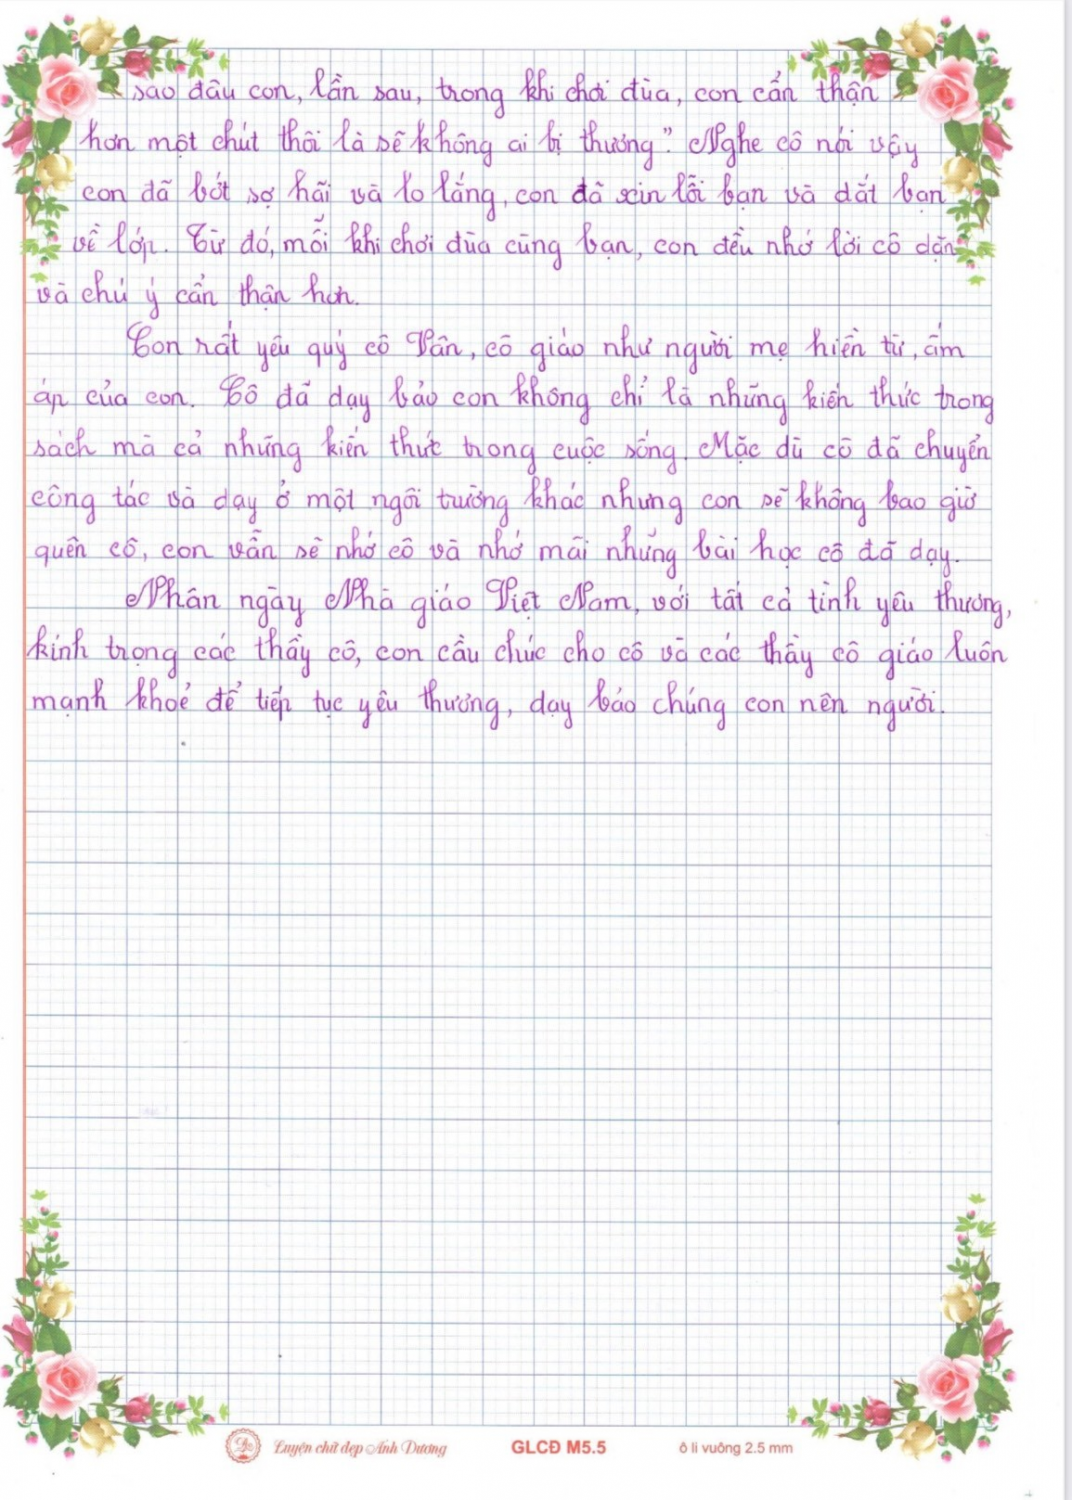 sao đâu con, lần sau, trong khi chơi đùa, con cẩn thận
hơn một chút thôi là sẽ không ai bị thương." Nghe cô nói vậy
con đã bớt sợ hãi và lo lắng, con đã xin lỗi bạn và dắt bạn
về lớp. Từ đó, mỗi khi chơi đùa cùng bạn, con đều nhớ lời cô dặn
và chú ý cẩn thận hơn.
Con rất yêu quý cô Vân, cô giáo như người mẹ hiền từ, ấm
áp của con. Cô đã dạy bảo con không chỉ là những kiến thức trong
sách mà cả những kiến thức trong cuộc sống. Mặc dù cô đã chuyển
công tác và dạy ở một ngôi trường khác nhưng con sẽ không bao giờ
quên cô, con vẫn sẽ nhớ cô và nhớ mãi những bài học cô đã dạy.
Nhân ngày Nhà giáo Việt Nam, với tất cả tình yêu thương,
kính trọng các thầy cô, con cầu chúc cho cô và các thầy cô giáo luôn
mạnh khoẻ để tiếp tục yêu thương, dạy bảo chúng con nên người.
Luyện chữ đẹp Ánh Dương GLCĐ M5.5 ô li vuông 2.5 mm